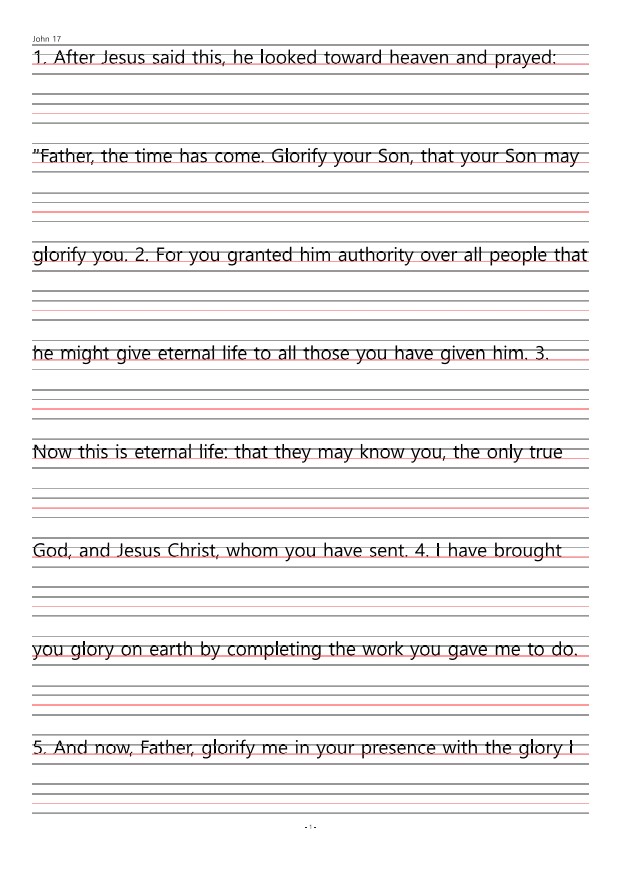 John 17
1. After Jesus said this, he looked toward heaven and prayed:
"Father, the time has come. Glorify your Son, that your Son may
glorify you. 2. For you granted him authority over all people that
he might give eternal life to all those you have given him. 3.
Now this is eternal life: that they may know you, the only true
God, and Jesus Christ, whom you have sent. 4. I have brought
you glory on earth by completing the work you gave me to do.
5. And now, Father, glorify me in your presence with the glory I
- 1 -